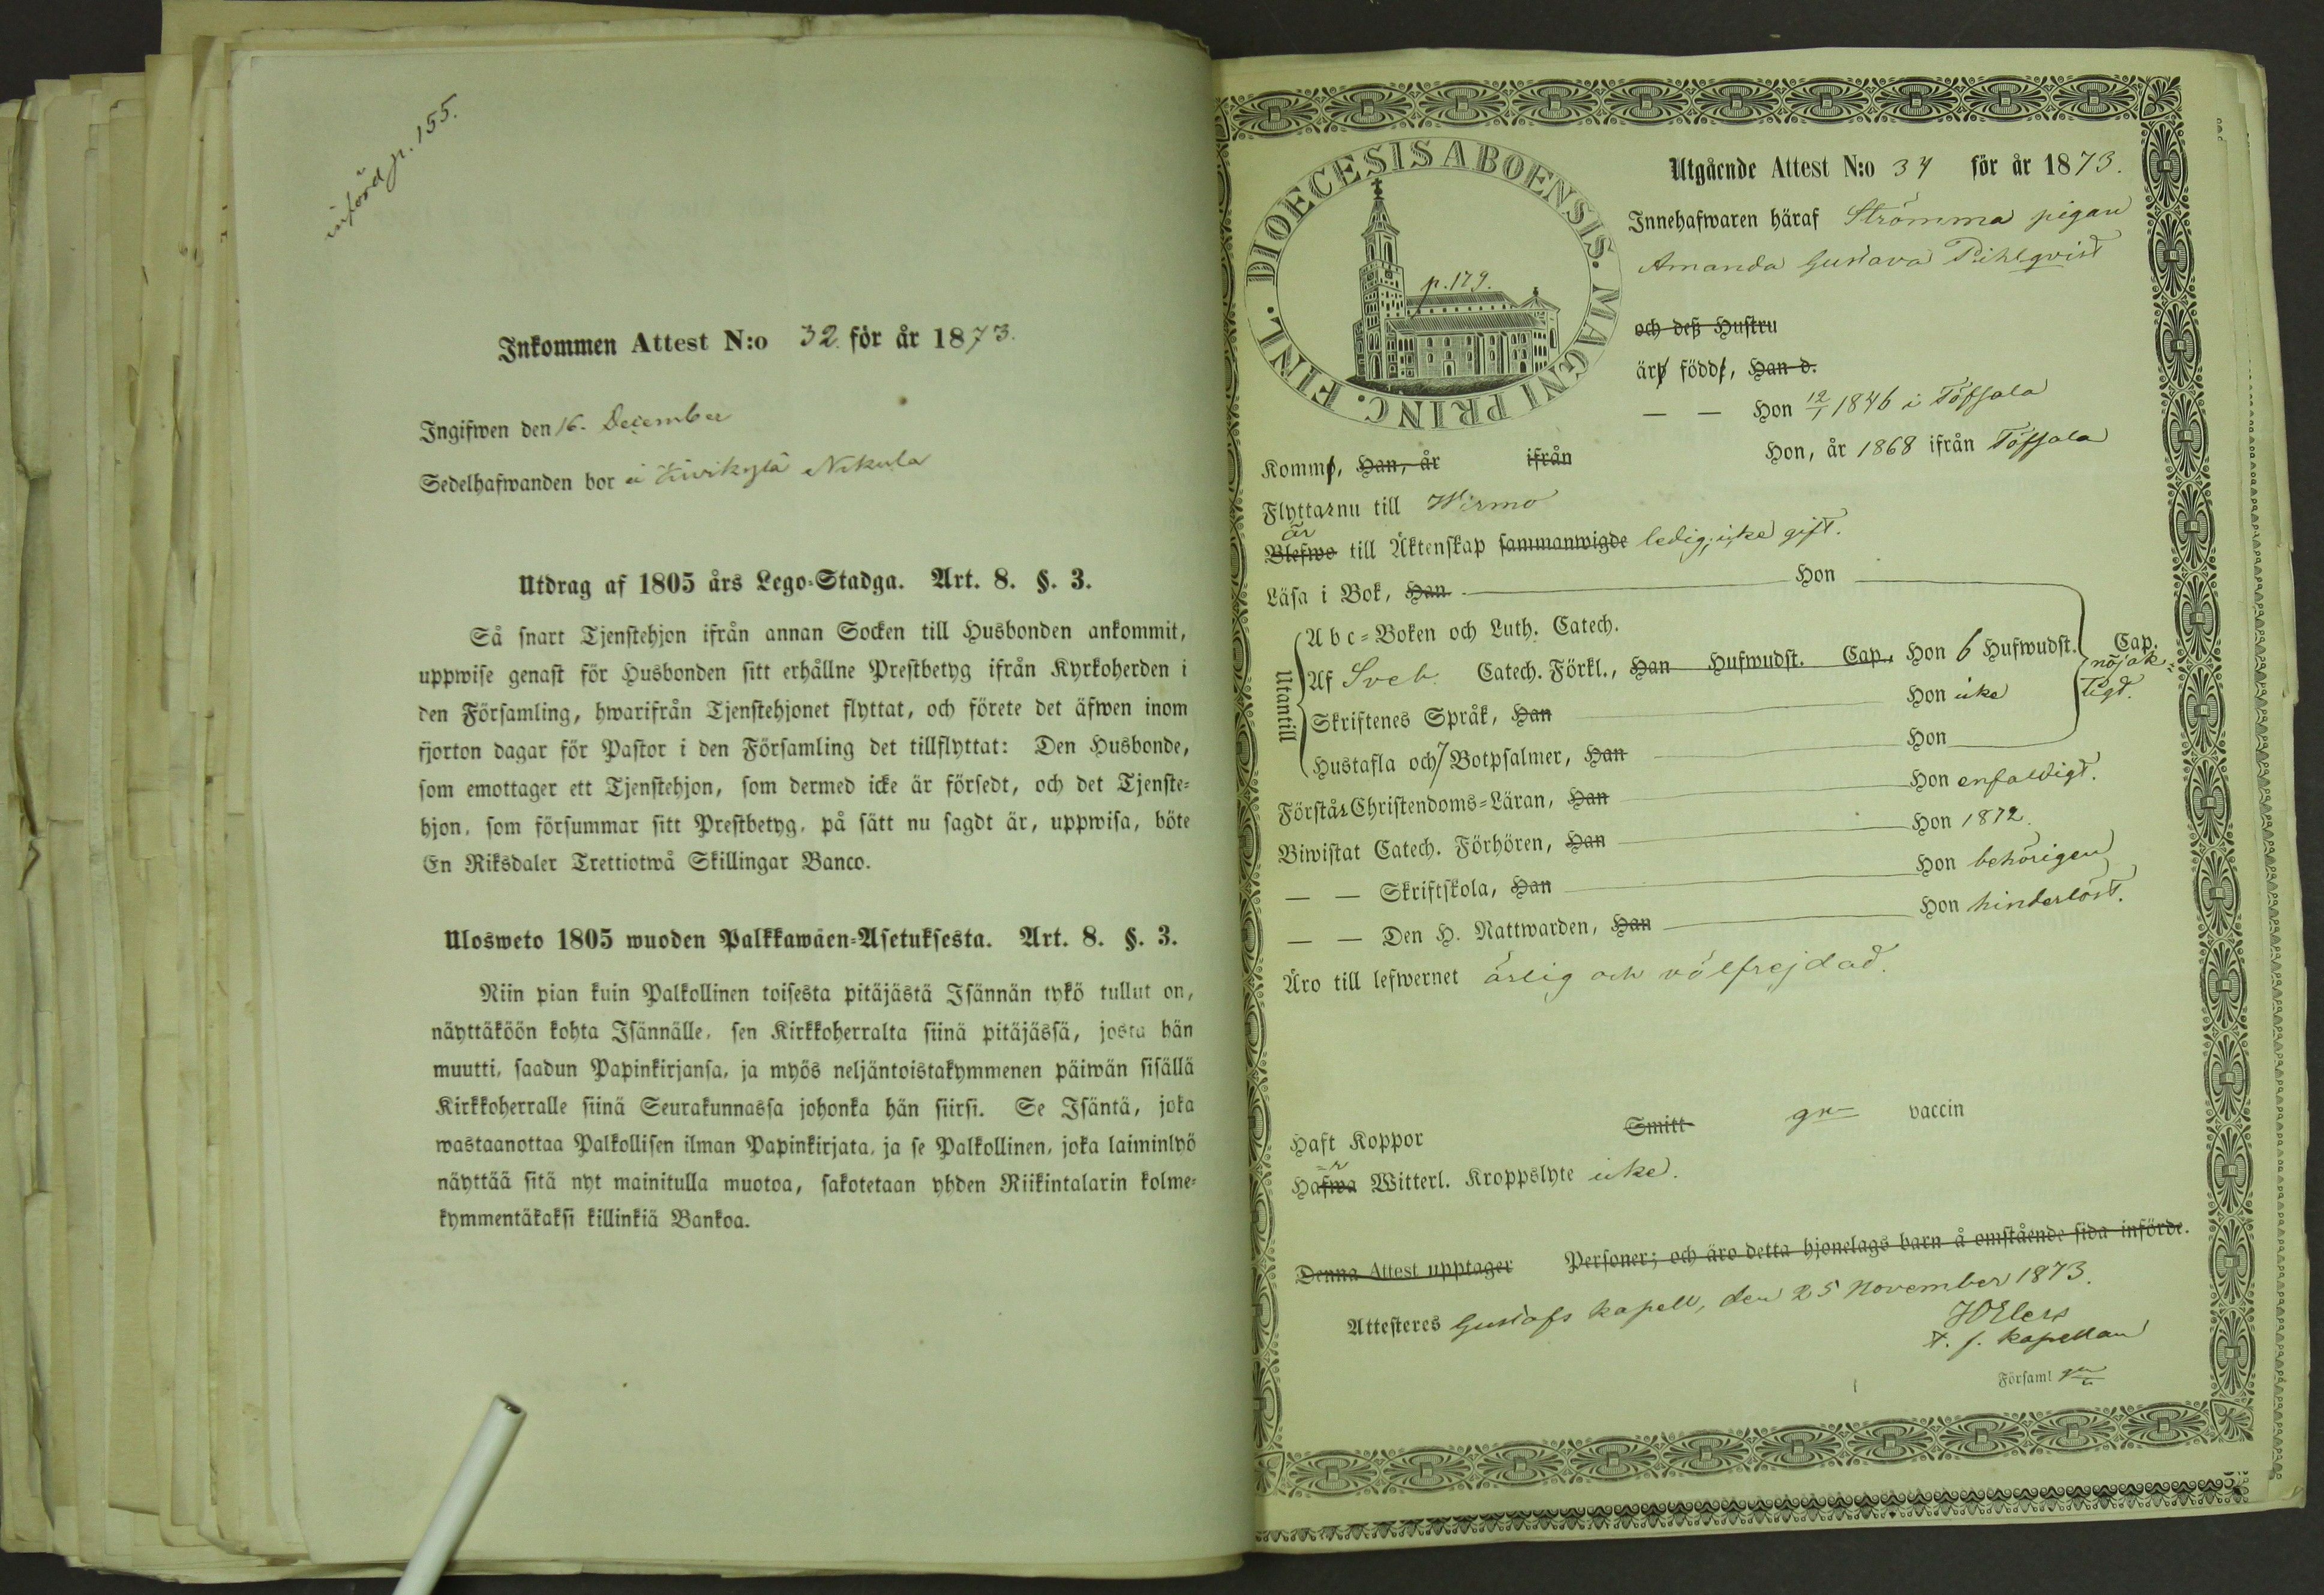 införd p. 155.
Inkommen Attest N:o 32 för år 1873.
Ingifwen den 16. December
Sedelhafwanden bor i Kivikylä Nikula
Utdrag af 1805 års Lego-Stadga. Art. 8. §. 3.
Så snart Tjenstehjon ifrån annan Socken till Husbonden ankommit,
uppwise genast för Husbonden sitt erhållne Prestbetyg ifrån Kyrkoherden i
den Församling, hwarifrån Tjenstehjonet flyttat, och förete det äfwen inom
fjorton dagar för Pastor i den Församling det tillflyttat: Den Husbonde,
som emottager ett Tjenstehjon, som dermed icke är försedt, och det Tjenste-
hjon, som försummar sitt Prestbetyg, på sätt nu sagdt är, uppwisa, böte
En Riksdaler Trettiotwå Skillingar Banco.
Ulosweto 1805 wuoden Palkkawäen-Asetuksesta. Art. 8. §. 3.
Niin pian kuin Palkollinen toisesta pitäjästä Isännän tykö tullut on,
näyttäköön kohta Isännälle, sen Kirkkoherralta siinä pitäjässä, josta hän
muutti, saadun Papinkirjansa, ja myös neljäntoistakymmenen päiwän sisällä
Kirkkoherralle siinä Seurakunnassa johonka hän siirsi. Se Isäntä, joka
wastaanottaa Palkollisen ilman Papinkirjata, ja se Palkollinen, joka laiminlyö
näyttää sitä nyt mainitulla muotoa, sakotetaan yhden Riikintalarin kolme-
kymmentäkaksi killinkiä Bankoa.
DIOECESIS ABOENSIS. MAGNI PRINC. FINL.
p. 179.
Utgående Attest N:o 34 för år 1873.
Innehafwaren häraf Strömma pigan
Amanda Gustava Pihlqvist
och deß Hustru
äro födde, Han d.
— — Hon 12/1 1846 i Töfsala
Komme, Han, år ifrån Hon, år 1868 ifrån Töfsala
Flyttar nu till Wirmo
är
Blefwo till Äktenskap sammanwigde ledig, icke gift.
Läsa i Bok, Han Hon
Utantill
Abc-Boken och Luth. Catech.
Af Sveb. Catech. Förkl., Han Hufwudst. Cap., Hon 6 Hufwudst. Cap.
nöjak-
ligt.
Skriftenes Språk, Han Hon icke
Hustafla och 7 Botpsalmer, Han Hon
Förstår Christendoms-Läran, Han Hon enfaldigt.
Biwistat Catech. Förhören, Han Hon 1872.
— — Skriftskola, Han Hon behörigen
— — Den H. Nattwarden, Han Hon hinderlöst.
Äro till lefwernet ärlig och välfrejdad.
Haft Koppor Smitt gm vaccin
Hafwa Witterl. Kroppslyte icke.
Denna Attest upptager Personer; och äro detta hjonelags barn å omstående sida införde.
Attesteres Gustafs kapell, den 25 November 1873.
t. f. kapellan
Församl